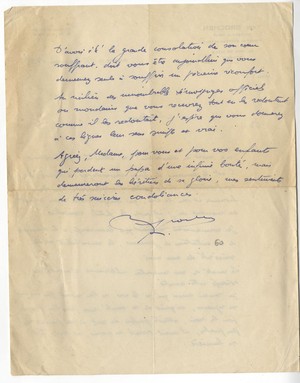 D'avoir été la grande consolation de son cœur
souffrant, dont vous êtes aujourd'hui qui vous
demeurez seule à souffrir un précieux réconfort.
Au milieu des innombrables témoignages officiels
ou mondains que vous recevrez tout en les redoutant
comme il les redoutait, j'espère que vous donnerez
à ces lignes leur sens simple et vrai.
Agréez, Madame, pour vous et pour vos enfants
qui perdent un papa d'une infinie bonté, mais
demeureront les héritiers de sa gloire, mes sentiments
de très sincères condoléances
60